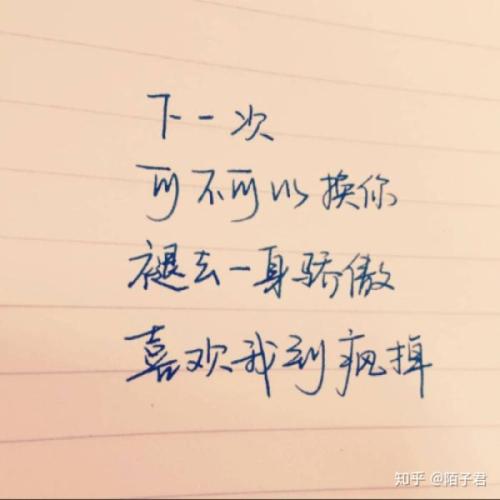 下一次
可不可以换你
褪去一身骄傲
喜欢我到疯掉
知乎 @陌子君